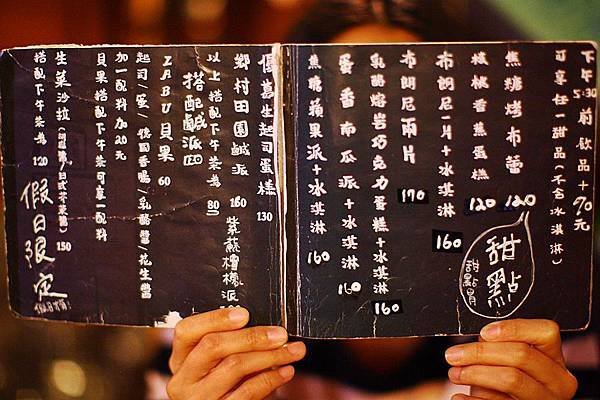 下午5:30前飲品+70元
可享任一甜品(不含冰淇淋)
甜點
焦糖烤布蕾 120
核桃香蕉蛋糕 120
布朗尼一片+冰淇淋 160
布朗尼兩片 170
乳酪熔岩巧克力蛋糕+冰淇淋 160
蛋香南瓜派+冰淇淋 160
焦糖蘋果派+冰淇淋 160
優喜生起司蛋糕 130
鄉村田園鹹派 160
紫蘇檸檬派
以上搭配下午茶為 80
搭配鹹派
ZABU貝果 60
起司/蛋/德國香腸/乳酪醬/花生醬
加一配料加20元
貝果搭配下午茶可享一配料
生菜沙拉 150
搭配下午茶為 120
假日限定